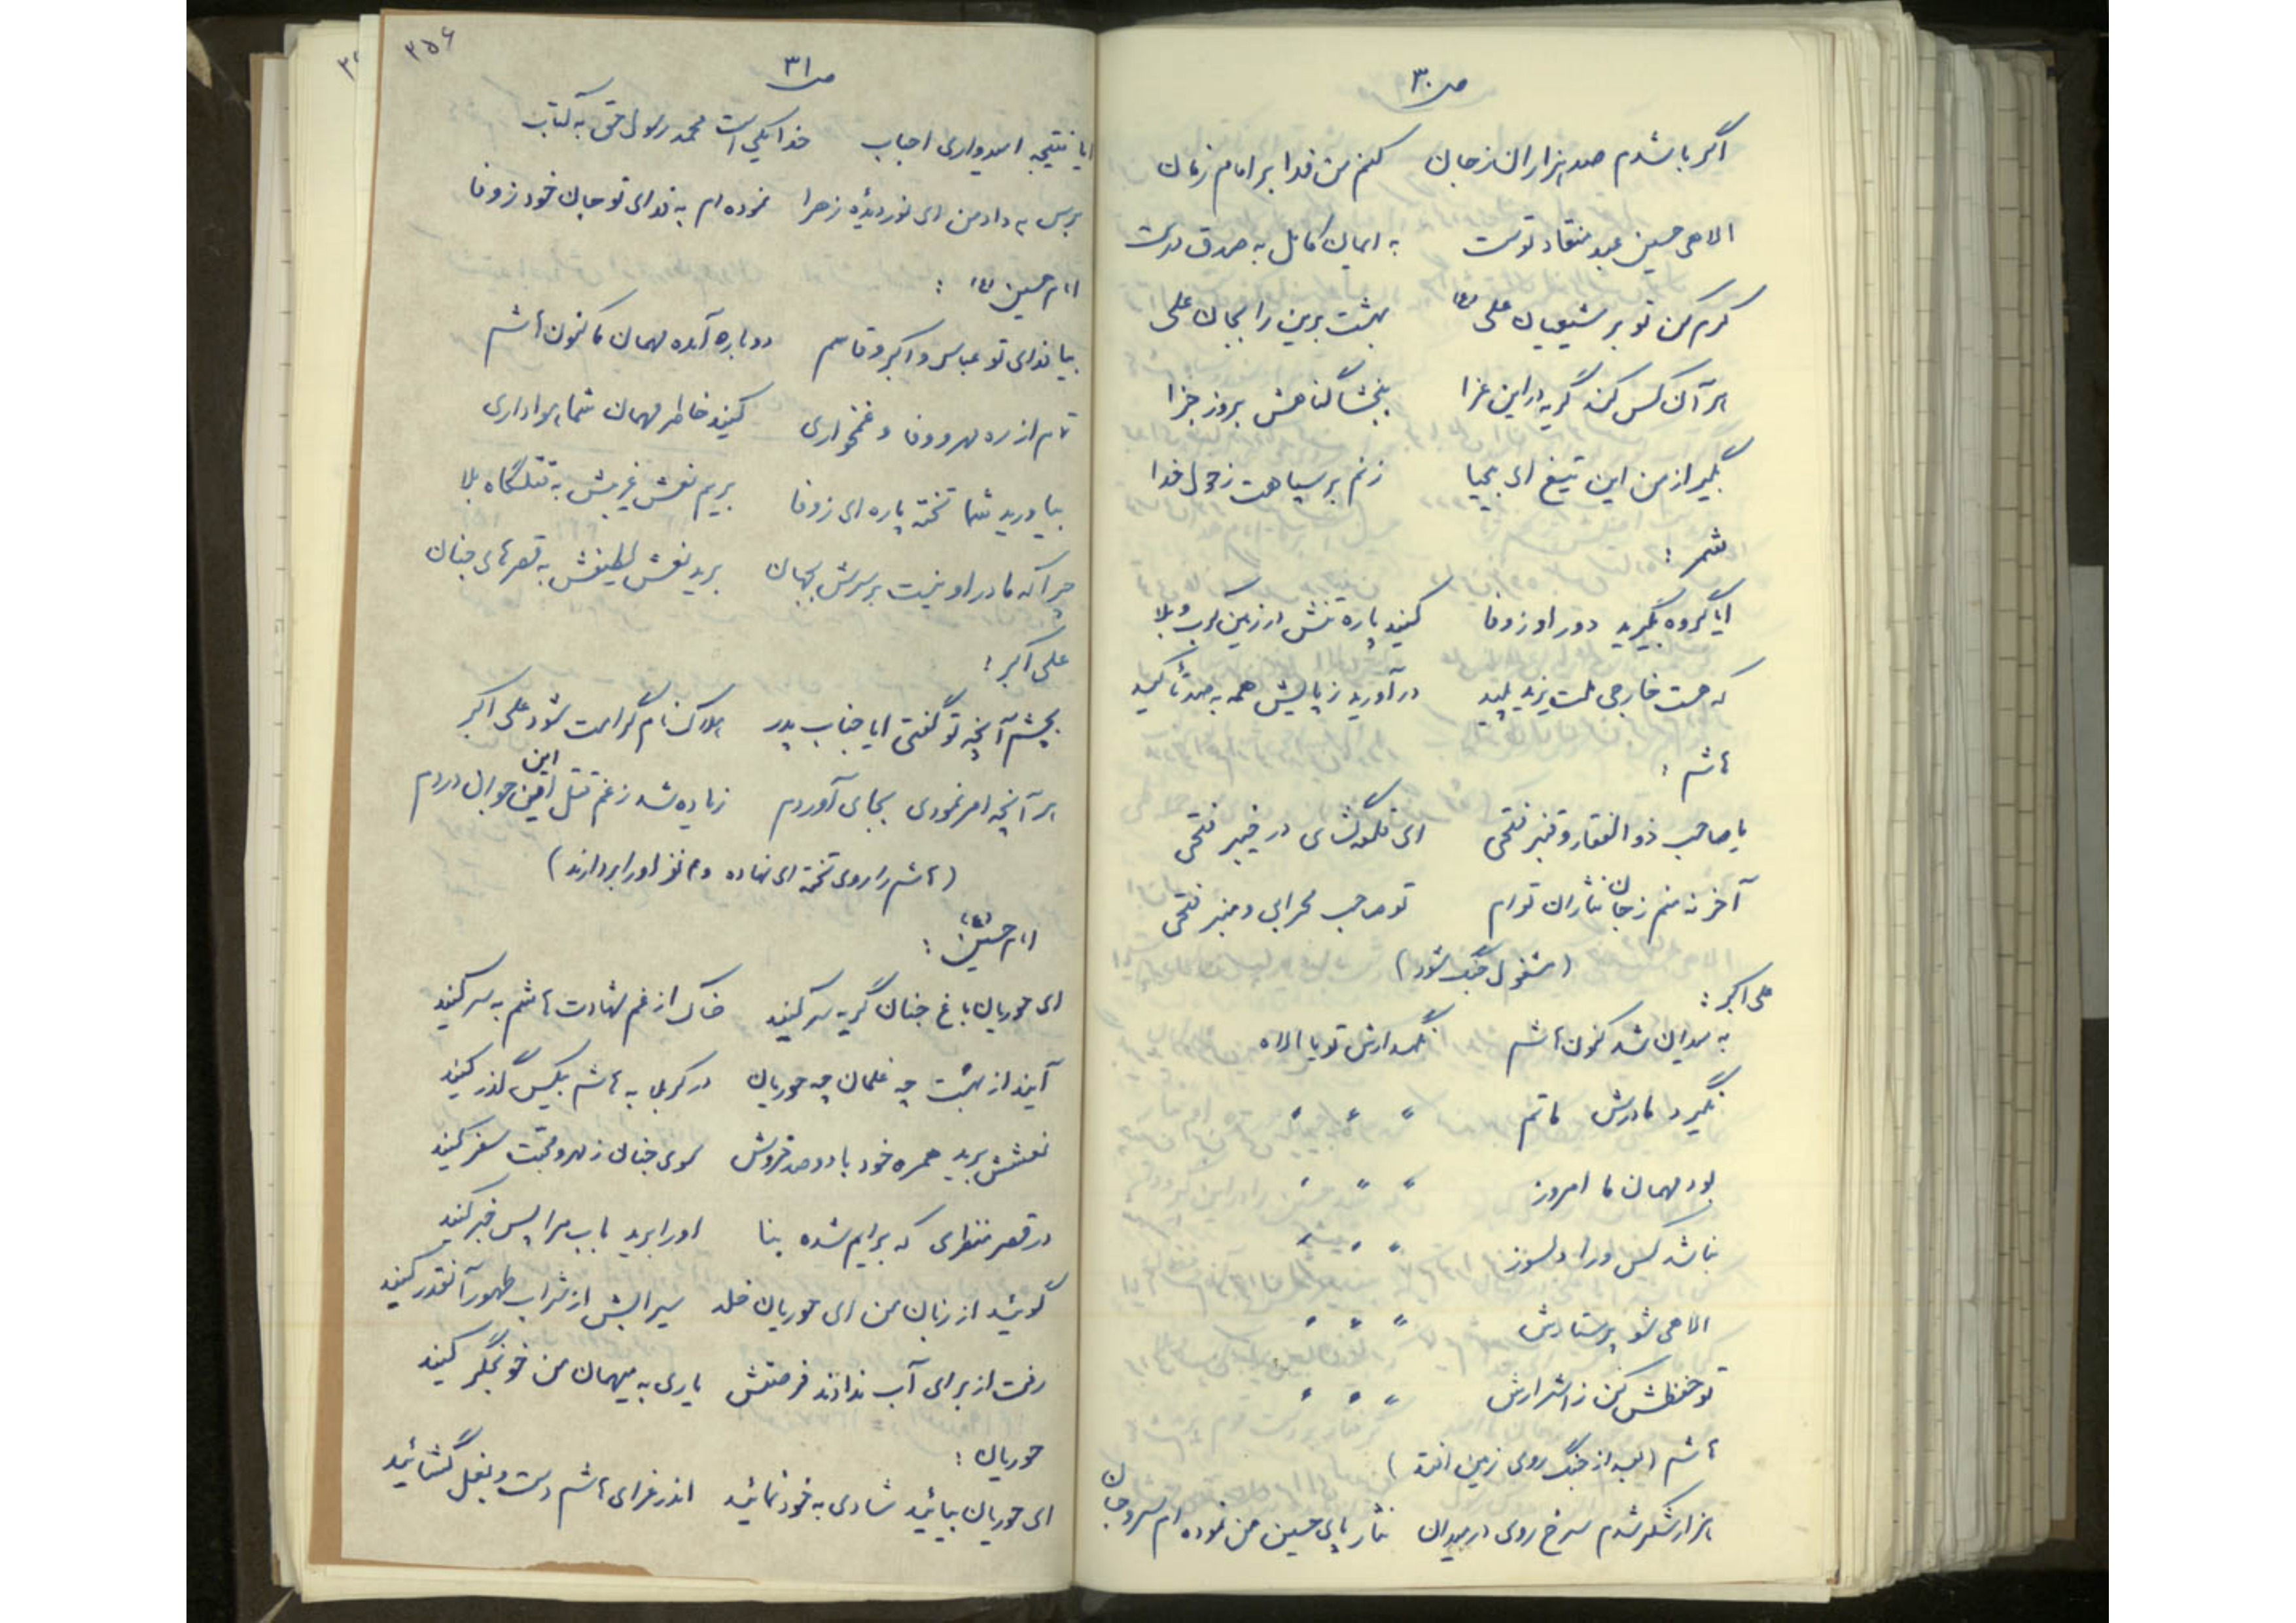 ص۳۰
اگر باشدم صد هزاران ز جان کنم من فدا بر امام زمان
الاهی حسین عبد منقاد توست به ایمان کامل به صدق درست
کرم کن تو بر شیعیان علی (ع) بهشت برین را بجان علی
هر آن کس کند گریه در این عزا ببخشا گناهش بروز جزا
بگیر از من این تیغ ای بی حیا زنم بر سپاهت ز حول خدا
شمر :
ایا گروه بگیرید دور او ز وفا کنید پاره تنش در زمین کرب و بلا
که هست خارجی ملت یزید پلید در آورید ز پایش همه به صد تأکید
هاشم :
یا صاحب ذوالفقار و قنبر فتحی ای قلعه گشای در خیبر فتحی
آخر نه منم ز جان نثاران توام تو صاحب محرابی و منبر فتحی
(مشغول جنگ شود)
علی اکبر :
به میدان شد کنون هاشم نگهدارش تو یا الاه
بگیرد مادرش ماتم " " "
بود مهمان ما امروز " " "
نباشد کس ورا دلسوز " " "
الاهی شو پرستارش " " "
تو حفظش کن ز اشرارش " " "
هاشم (بعد از جنگ روی زمین افتد)
هزار شکر شدم سرخ روی در میدان نثار پای حسین من نموده ام سر و جان
۳۵۶
ص۳۱
ایا نتیجه امیدواری احباب خدا یکی است محمد رسول حق به کتاب
برس به داد من ای نور دیدهٔ زهرا نموده ام به فدای تو جان خود ز وفا
امام حسین (ع) :
بیا فدای تو عباس و اکبر و قاسم دوباره آمده مهمان ما کنون هاشم
تمام از ره مهر و وفا و غمخواری کنید خاطر مهمان شما هواداری
بیاورید شما تخته پاره ای ز وفا بریم نعش غریبش به قتلگاه بلا
چرا که مادر او نیست بر سرش بجهان برید نعش لطیفش به قصرهای جنان
علی اکبر :
بچشم آنچه تو گفتی ایا جناب پدر هلاک نام گرامت شود علی اکبر
هر آنچه امر نمودی بجای آوردم زیاده شد ز غم قتل این جوان دردم
(هاشم را روی تخته ای نهاده و دو نفر او را بردارند)
امام حسین (ع) :
ای حوریان باغ جنان گریه سر کنید خاک از غم شهادت هاشم به سر کنید
آیید از بهشت چه غلمان چه حوریان در کربلا به هاشم بیکس گذر کنید
نعشش برید همره خود با دو صد خروش سوی جنان ز مهر و محبت سفر کنید
در قصر منظری که برایم شده بنا او را برید باب مرا پس خبر کنید
گوئید از زبان من ای حوریان خلد سیرابش از شراب طهور آنقدر کنید
رفت از برای آب ندادند فرصتش یاری به میهمان من خونجگر کنید
حوریان :
ای حوریان بیائید شادی به خود نمائید اندر عزای هاشم دست و بغل گشائید